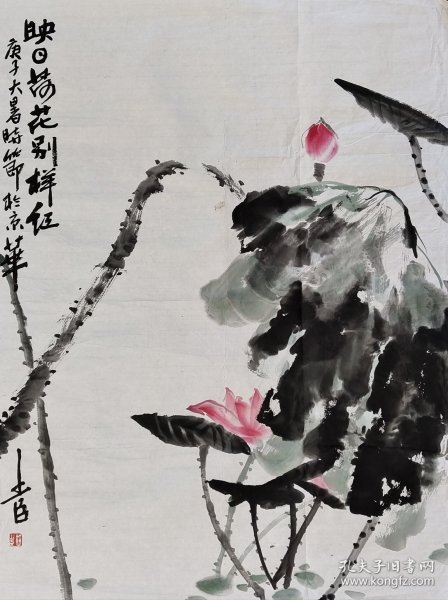 映日荷花别样红
庚子大暑時節於京華
孔夫子旧书网
www.kongfz.com